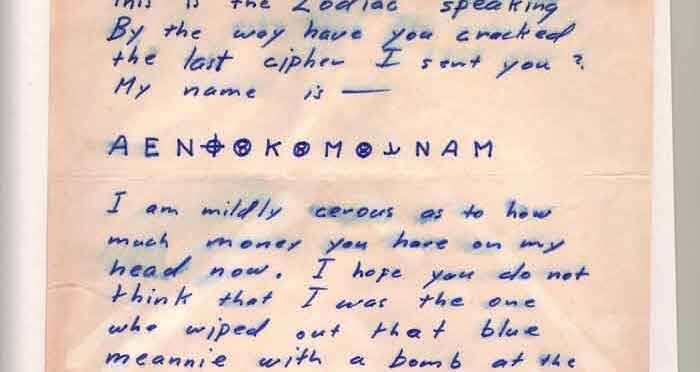 This is the Zodiac speaking
By the way have you cracked
the last cipher I sent you ?
My name is —
A E N ⌖ ⊗ K ⊗ M ⊗ ⅄ N A M
I am mildly cerous as to how
much money you have on my
head now. I hope you do not
think that I was the one
who wiped out that blue
meannie with a bomb at the